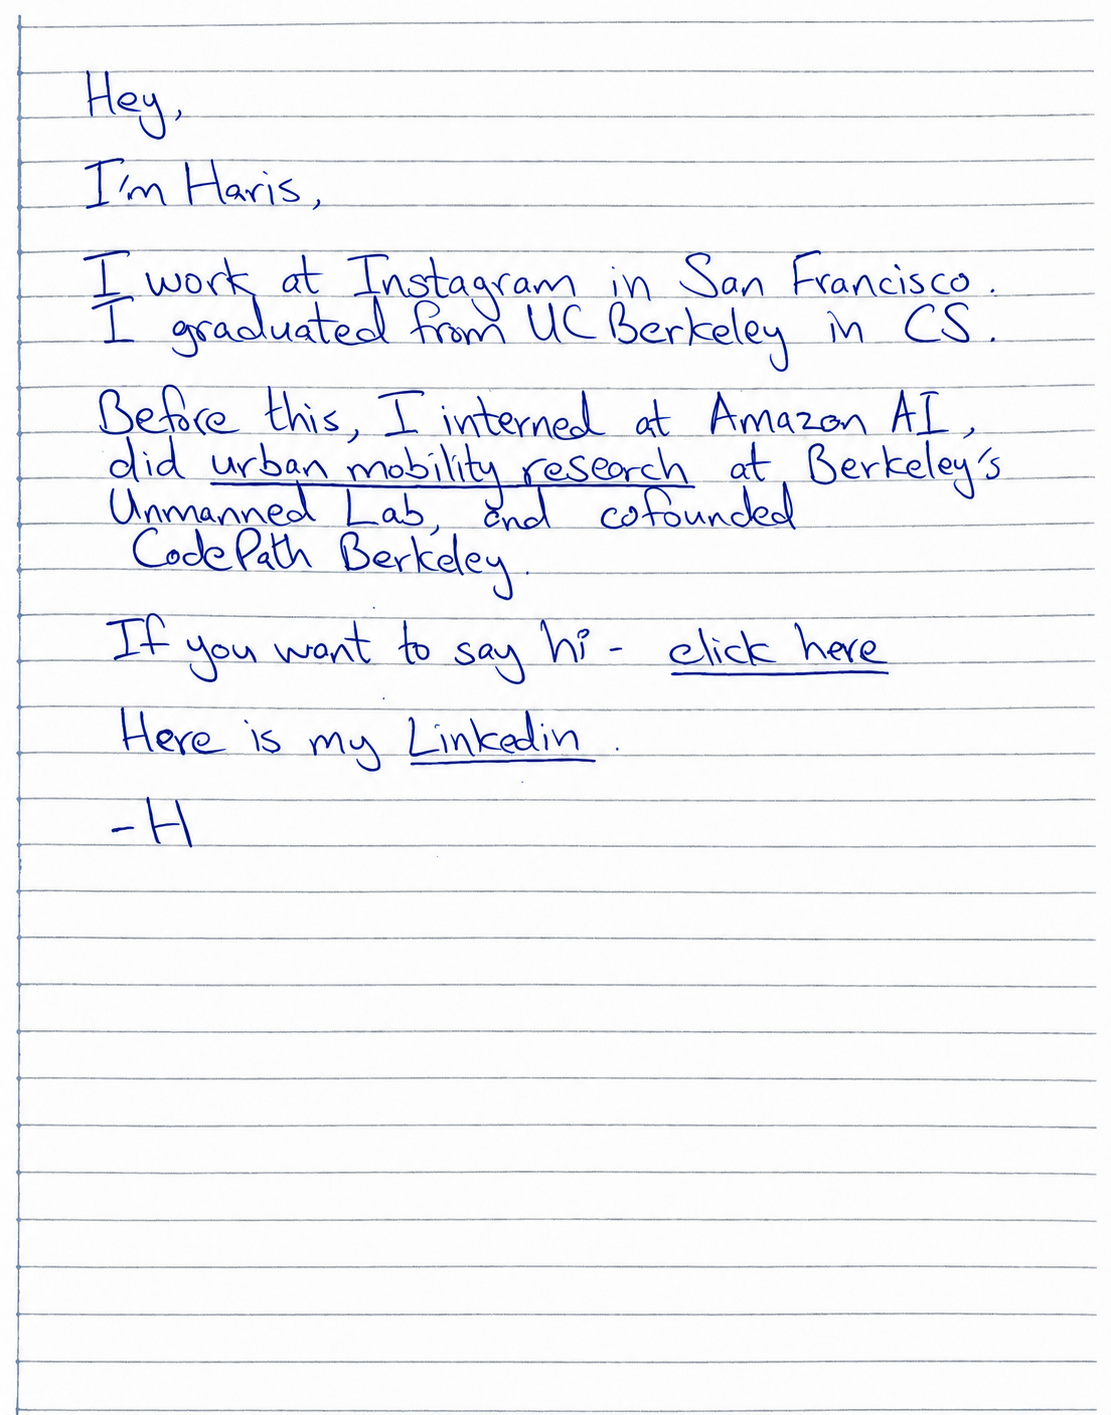 Hey,
I'm Haris,
I work at Instagram in San Francisco.
I graduated from UC Berkeley in CS.
Before this, I interned at Amazon AI,
did urban mobility research at Berkeley's
Unmanned Lab, and cofounded
CodePath Berkeley.
If you want to say hi - click here
Here is my Linkedin.
- H